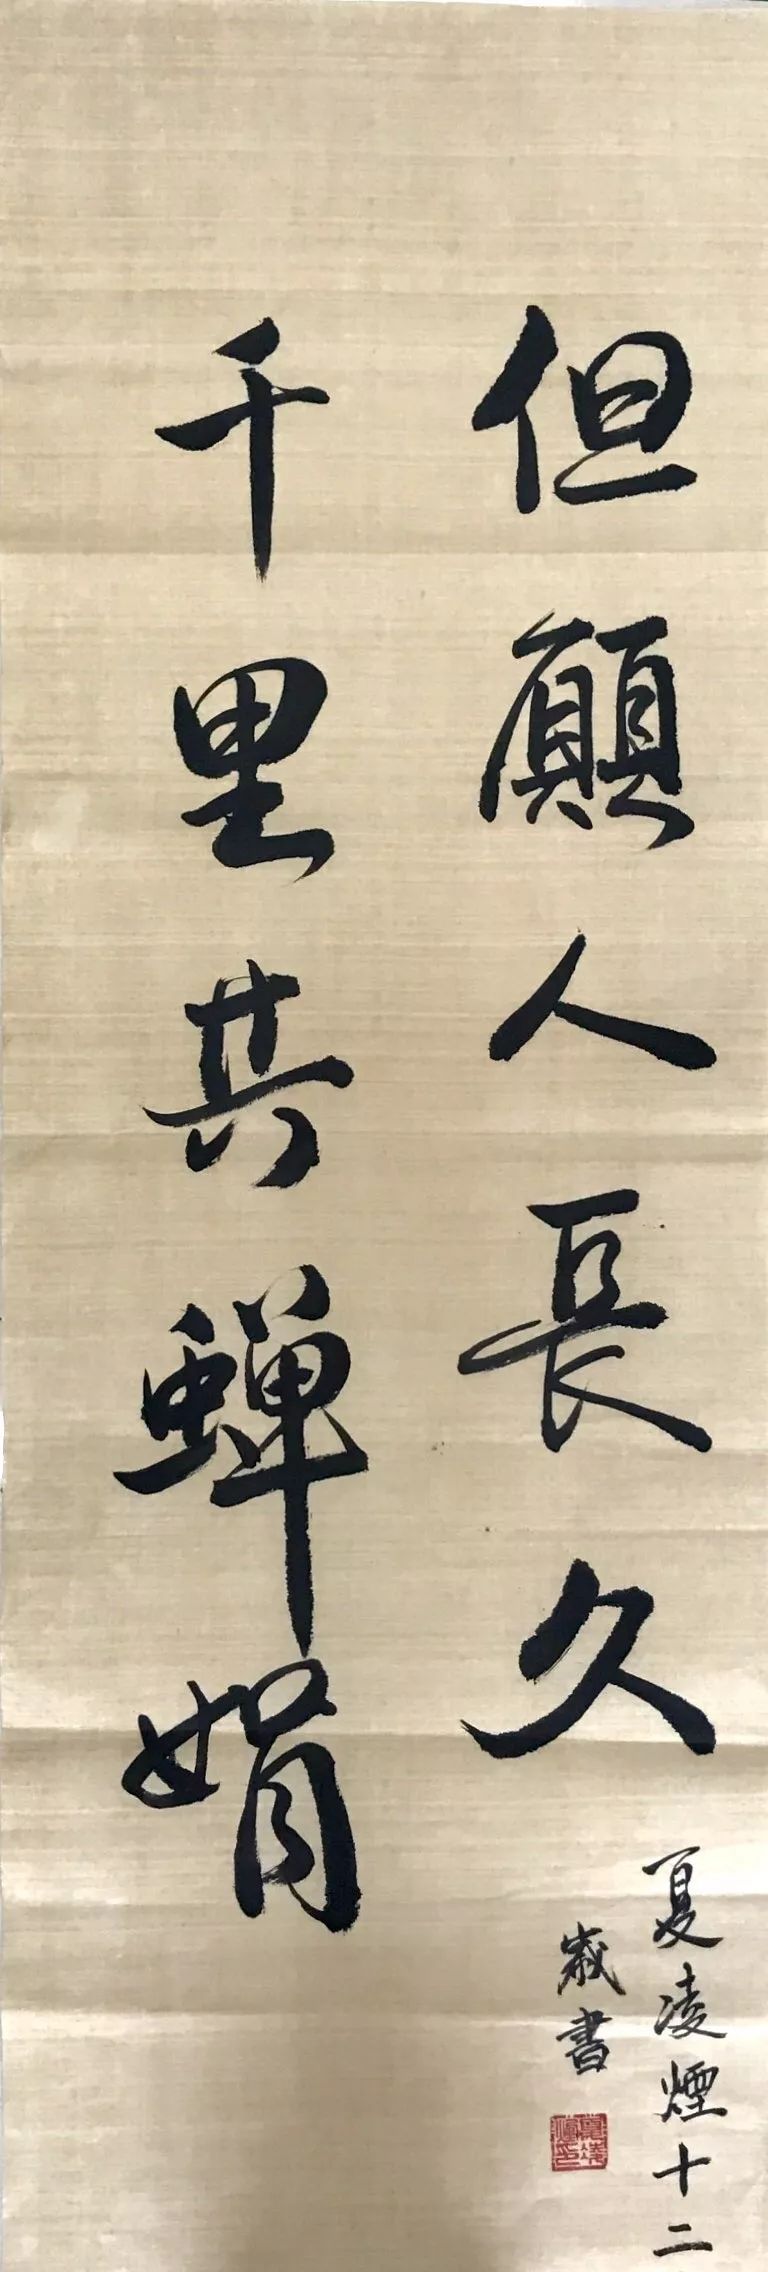 但願人長久
千里共蟬娟
夏凌煙十二
歲書